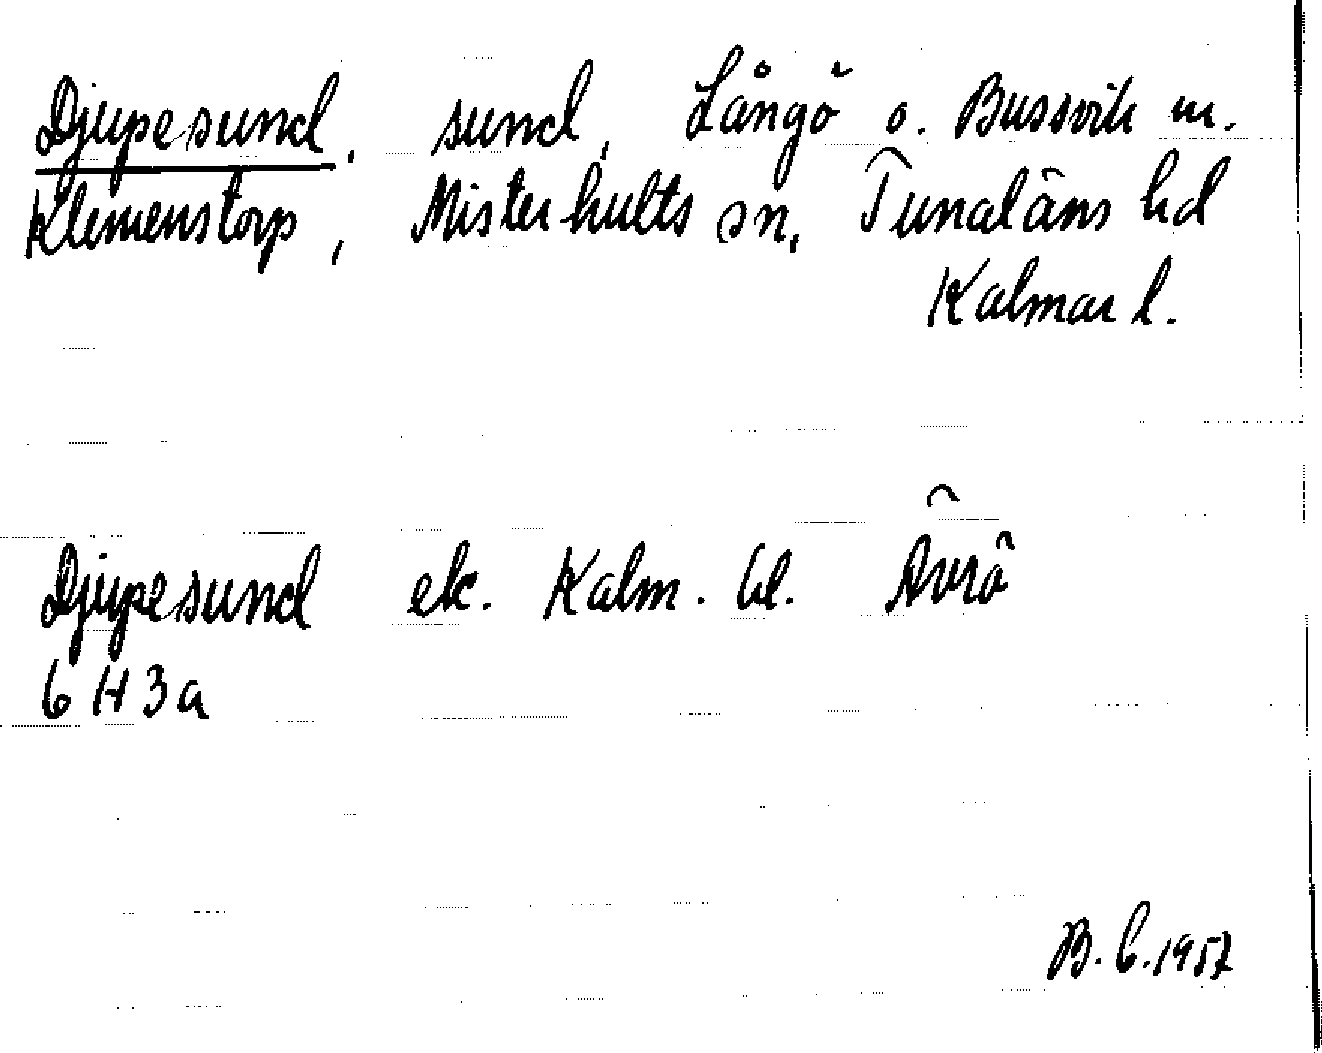 Djupesund, sund, Långö o. Bussvik m.
Klemenstorp, Misterhults sn, Tunaläns hd
Kalmar l.
Djupesund ek. Kalm. bl. Ävrö
6 H 3 a
B. b. 1957